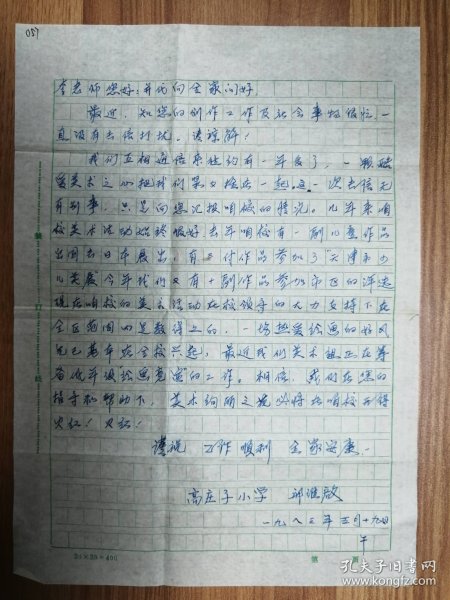 057
李老师您好:并代向全家问好
最近,知您的创作工作及社会事物很忙,一
直没有去信打扰。请谅解!
我们互相通信系统约有一年多了,一颗酷
爱美术之心把我们紧紧栓在一起,这一次去信无
有别事,只是向您汇报咱校的情况。几年来咱
校美术活动始终很好去年咱校有一副儿童作品
出国去日本展出,有二付作品参加了"天津市少
儿美展今年我们又有十副作品参加市区的评选
现在咱校的美术活动在校领导的大力支持下在
全区范围内是数得上的,一场热爱绘画的好风
气已基本在全校兴起,最近我们美术组正在筹
备低年级绘画竞赛"的工作。相信,我们在您的
指导和帮助下,美术绚丽之花必将在咱校开得
火红!火红!
谨祝 工作顺利 全家安康.
高庄子小学 邱维啟
一九八三年五月十九日
午
装 订 线
20×20=400
第 页
孔夫子旧书网